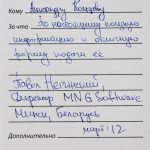 Кому Александру Кашубову
За что За настоящую полезную
информацию и отличную
форму подачи её
Павел Негинский,
Директор MNG Software
Минск, Беларусь
Дополнительно март '12